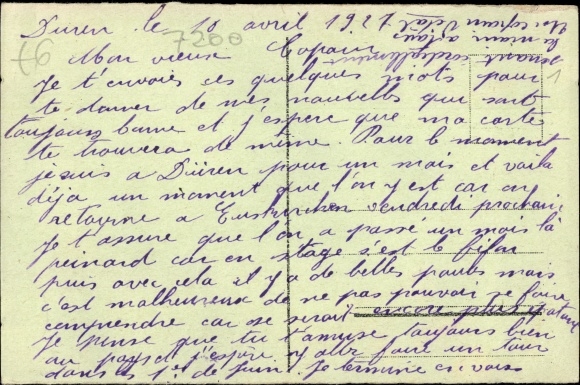 Duren le 10 avril 1927
76
7200
1
Mon vieux Copain
Je t'envoies ces quelques mots pour
te donner de mes nouvelles qui sont
toujours bonne et j'espere que ma carte
te trouvera de même. Pour le moment
je suis a Düren pour un mois et voila
déja un moment que l'on y est car on
retourne a Euskirchen vendredi prochain
Je t'assure que l'on a passe un mois là
peinard car en stage s'est le filon
puis avec cela il y a de belles poules mais
c'est malheureux de ne pas pouvoir se faire
comprendre car se serait encore plus
Je pense que tu t'amuse toujours bien
au pays et j'espere y aller faire un tour
dans les 1er de juin. Je termine en vous
serrant cordialement
la main a tous
Ton copain